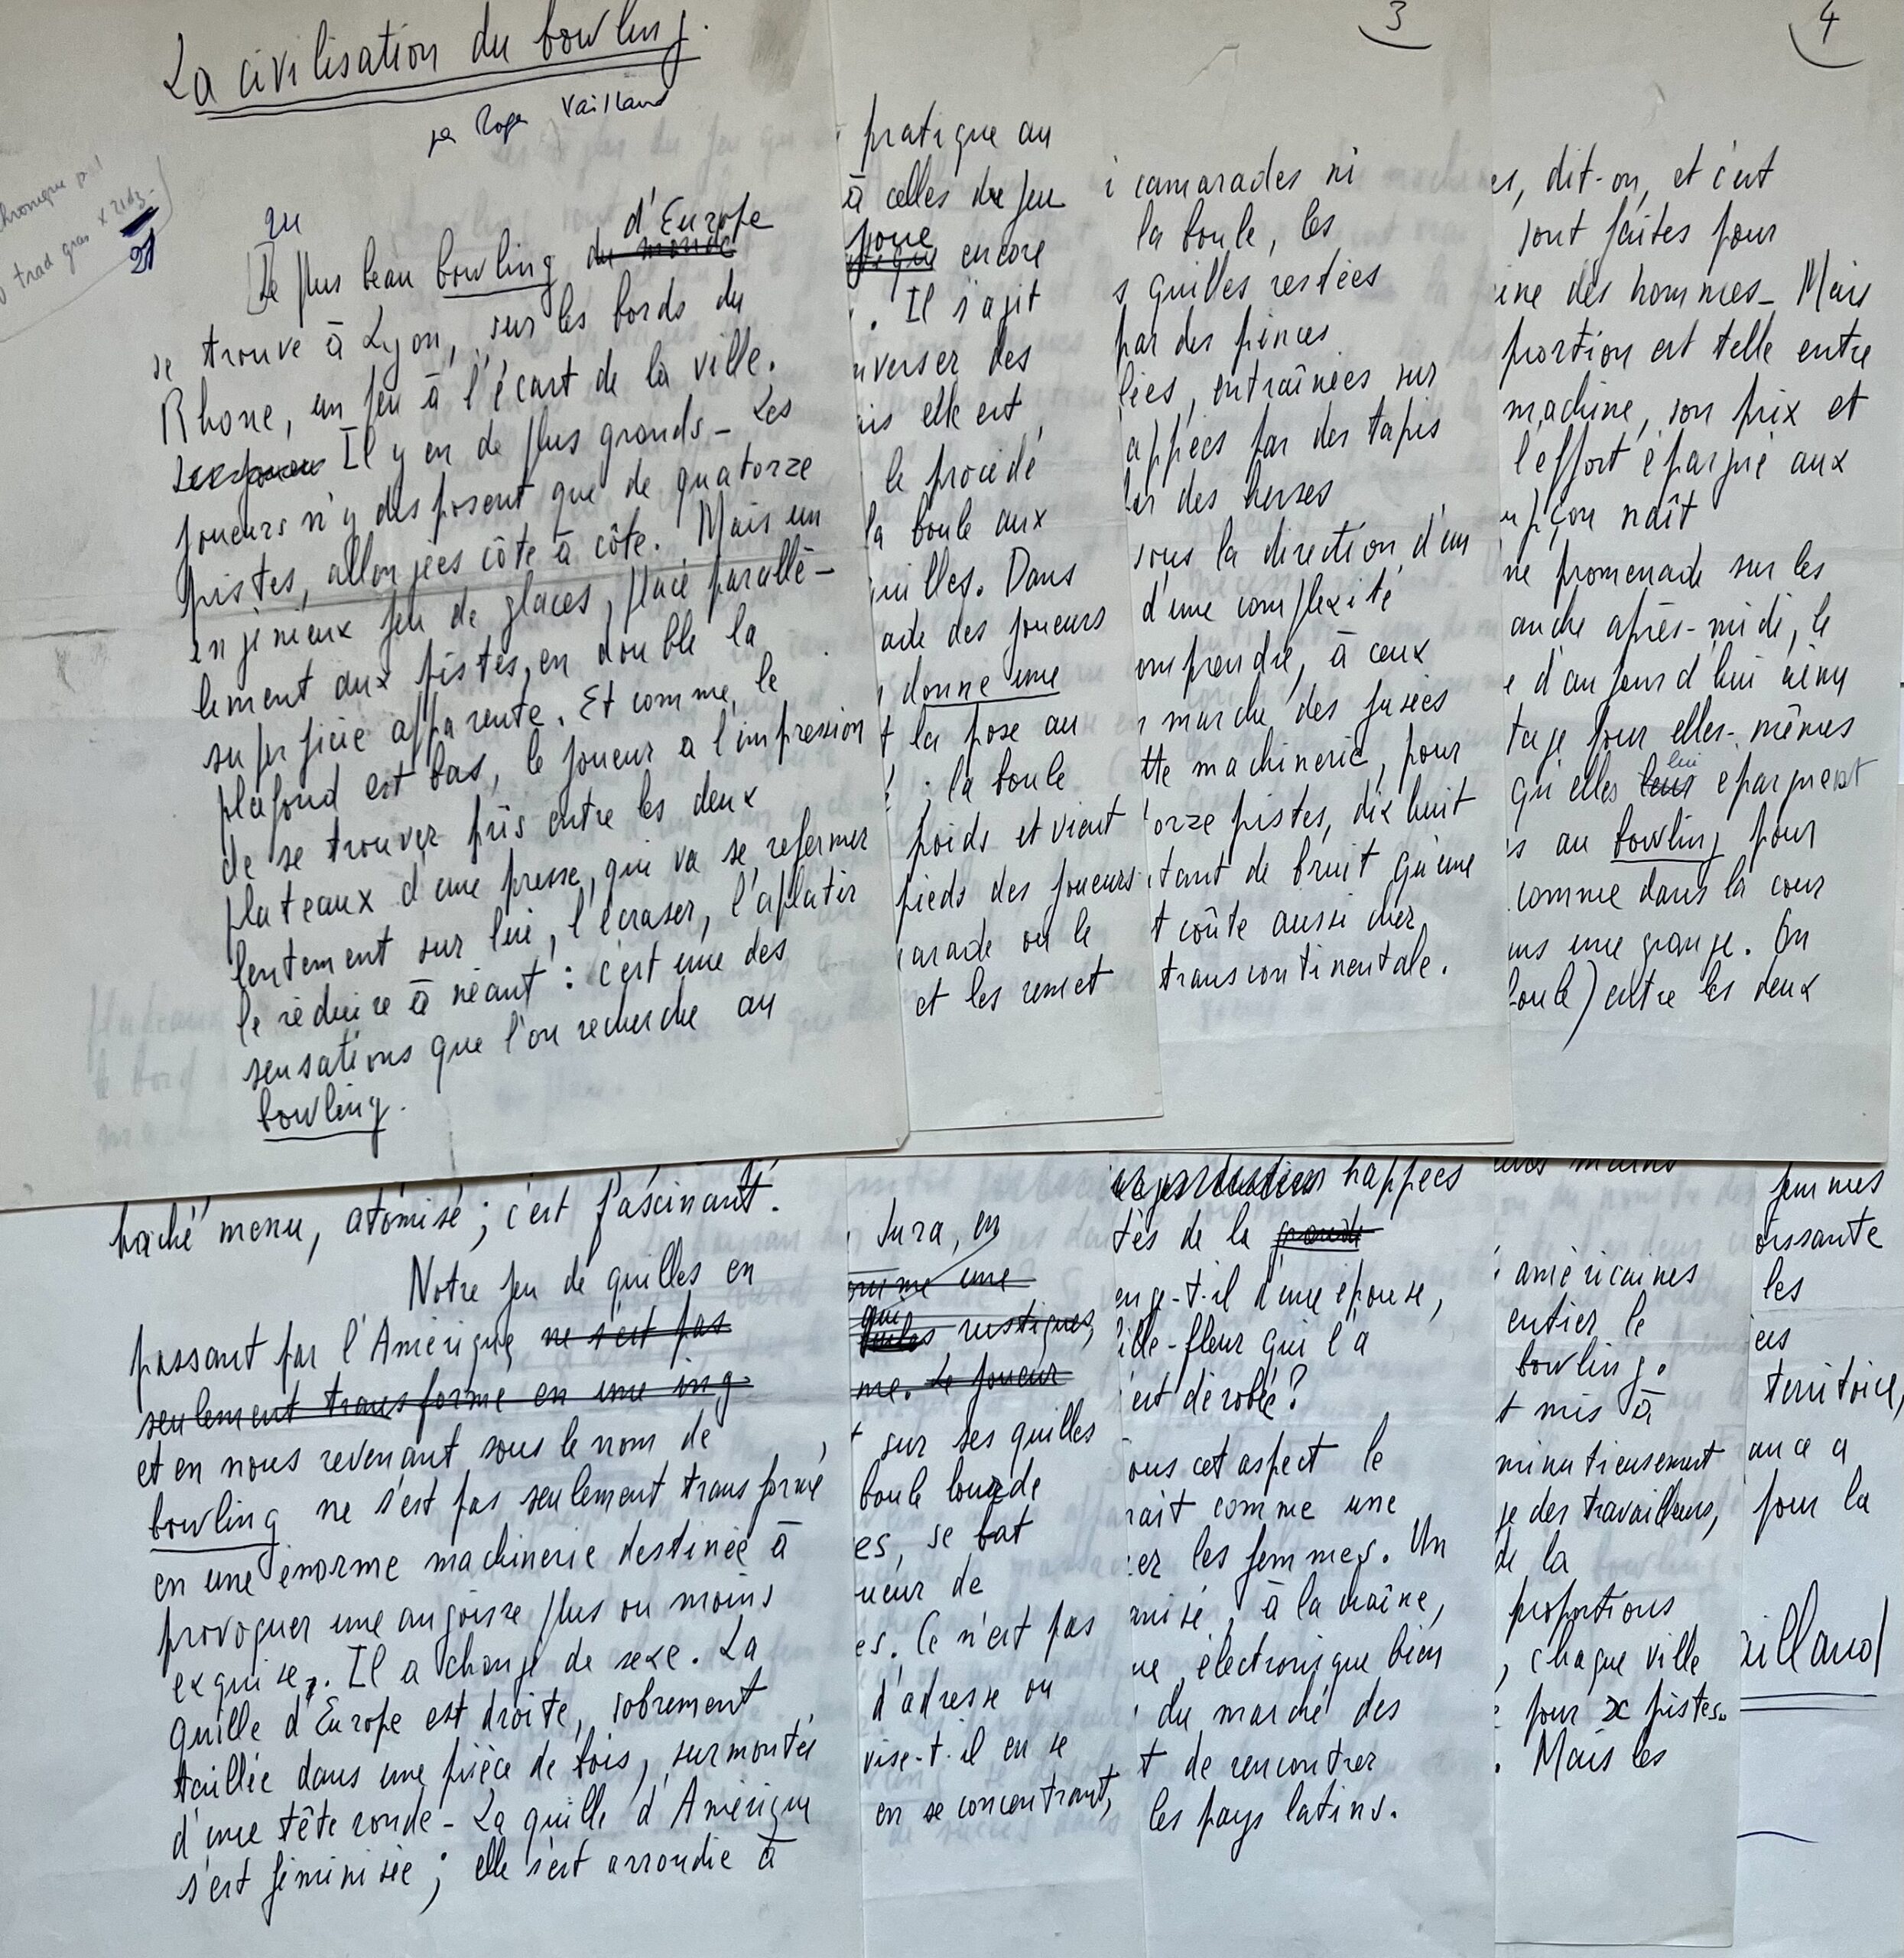 La civilisation du bowling.
par Roger Vailland
chronique
trad gras x 21
21
qu
d'Europe
Le plus beau bowling du monde
se trouve à Lyon, sur les bords du
Rhone, un peu à l'écart de la ville.
Les joueurs Il y en de plus grands - Les
joueurs n'y disposent que de quatorze
pistes, allongées côte à côte. Mais un
ingénieux jeu de glaces, placé parallè-
lement aux pistes, en double la
superficie apparente. Et comme le
plafond est bas, le joueur a l'impression
de se trouver pris entre les deux
plateaux d'une presse, qui va se refermer
lentement sur lui, l'écraser, l'aplatir
le réduire à néant : c'est une des
sensations que l'on recherche au
bowling.
pratique au
à celles du jeu
joue
encore
. Il s'agit
nverser des
ais elle est
le procédé
la boule aux
uilles. Dans
ade des joueurs
donne une
t la pose au
; la boule
poids et vient
pieds des joueurs
arade ou le
et les remet
3
i camarades ni
la boule, les
s quilles restées
par des pinces
lées, entraînées sur
appées par des tapis
par des herses
sous la direction d'un
d'une complexité
omprendre, à ceux
marche des fusées
tte machinerie, pour
orze pistes, dix huit
tant de bruit qu'une
t coûte aussi cher
transcontinentale.
4
es, dit-on, et c'est
sont faites pour
ine des hommes - Mais
portion est telle entre
machine, son prix et
l'effort épargné aux
upçon naît
ne promenade sur les
anche après-midi, le
e d'aujourd'hui aime
tage pour elles-mêmes
lui
qu'elles leur epargnent
s au bowling pour
comme dans la cour
ans une grange. On
boule) entre les deux
haché menu, atomisé ; c'est fascinant.
Notre jeu de quilles en
passant par l'Amérique ne s'est pas
seulement transformé en une ing
et en nous revenant sous le nom de
bowling ne s'est pas seulement transformé
en une énorme machinerie destinée à
provoquer une angoisse plus ou moins
exquise. Il a changé de sexe. La
quille d'Europe est droite, sobrement
taillée dans une pièce de bois, surmontée
d'une tête ronde - La quille d'Amérique
s'est féminisée ; elle s'est arrondie à
Jura, en
omme une
qui
rustiques,
me. Le joueur
t sur ses quilles
boule lourde
es, se bat
ueur de
es. Ce n'est pas
d'adresse ou
vise-t-il en se
en se concentrant,
happées
tés de la grande
enge-t-il d'une épouse,
ille-fleur qui l'a
est dérobée ?
ous cet aspect le
rait comme une
er les femmes. Un
anisé, à la chaîne,
ue électronique bien
du marché des
t de rencontrer
les pays latins.
mains
américaines
entier le
bowling.
t mis à
minutieusement
ge des travailleurs,
de la
proportions
, chaque ville
e pour x pistes.
. Mais les
femmes
oissante
les
ées
territoire,
ance a
pour la
aillaud